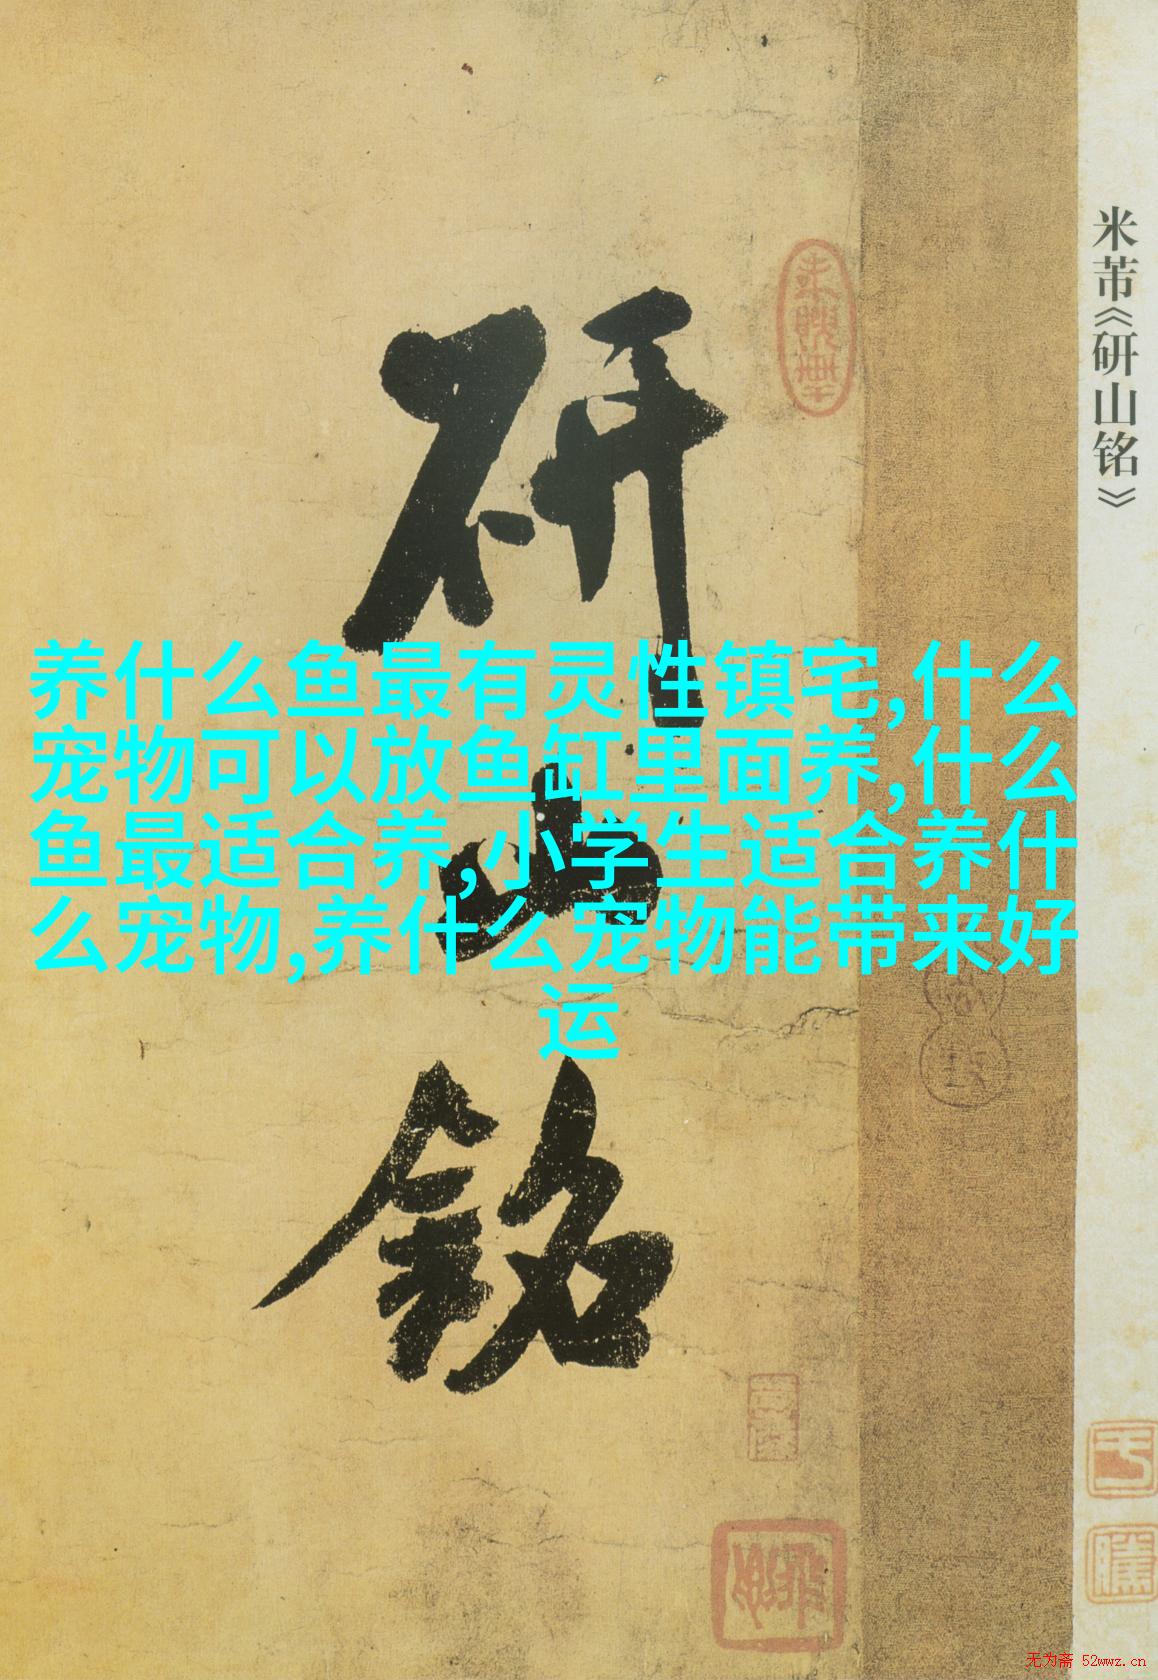 米芾《研山铭》
研山铭
养什么鱼最有灵性镇宅,什么
宠物可以放鱼缸里面养,什么
鱼最适合养,小学生适合养什
么宠物,养什么宠物能带来好
运
无为斋 52wwz.cn